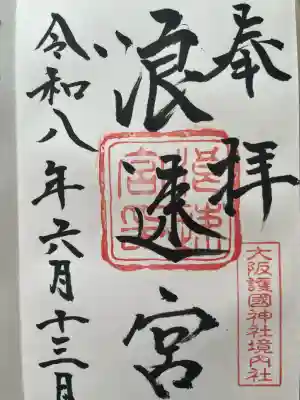 奉拝
浪速宮
浪速宮印
大阪護國神社境内社
令和八年六月十三日